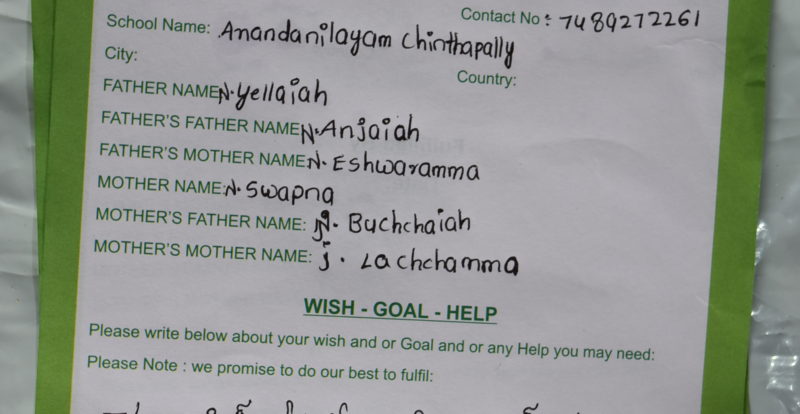 Contact No : 7489272261
School Name: Anandanilayam Chinthapally
City:
Country:
FATHER NAME: N. Yellaiah
FATHER'S FATHER NAME: N. Anjaiah
FATHER'S MOTHER NAME: N. Eshwaramma
MOTHER NAME: N. Swapna
MOTHER'S FATHER NAME: J. Buchchaiah
MOTHER'S MOTHER NAME: j. Lachchamma
WISH - GOAL - HELP
Please write below about your wish and or Goal and or any Help you may need:
Please Note : we promise to do our best to fulfil: